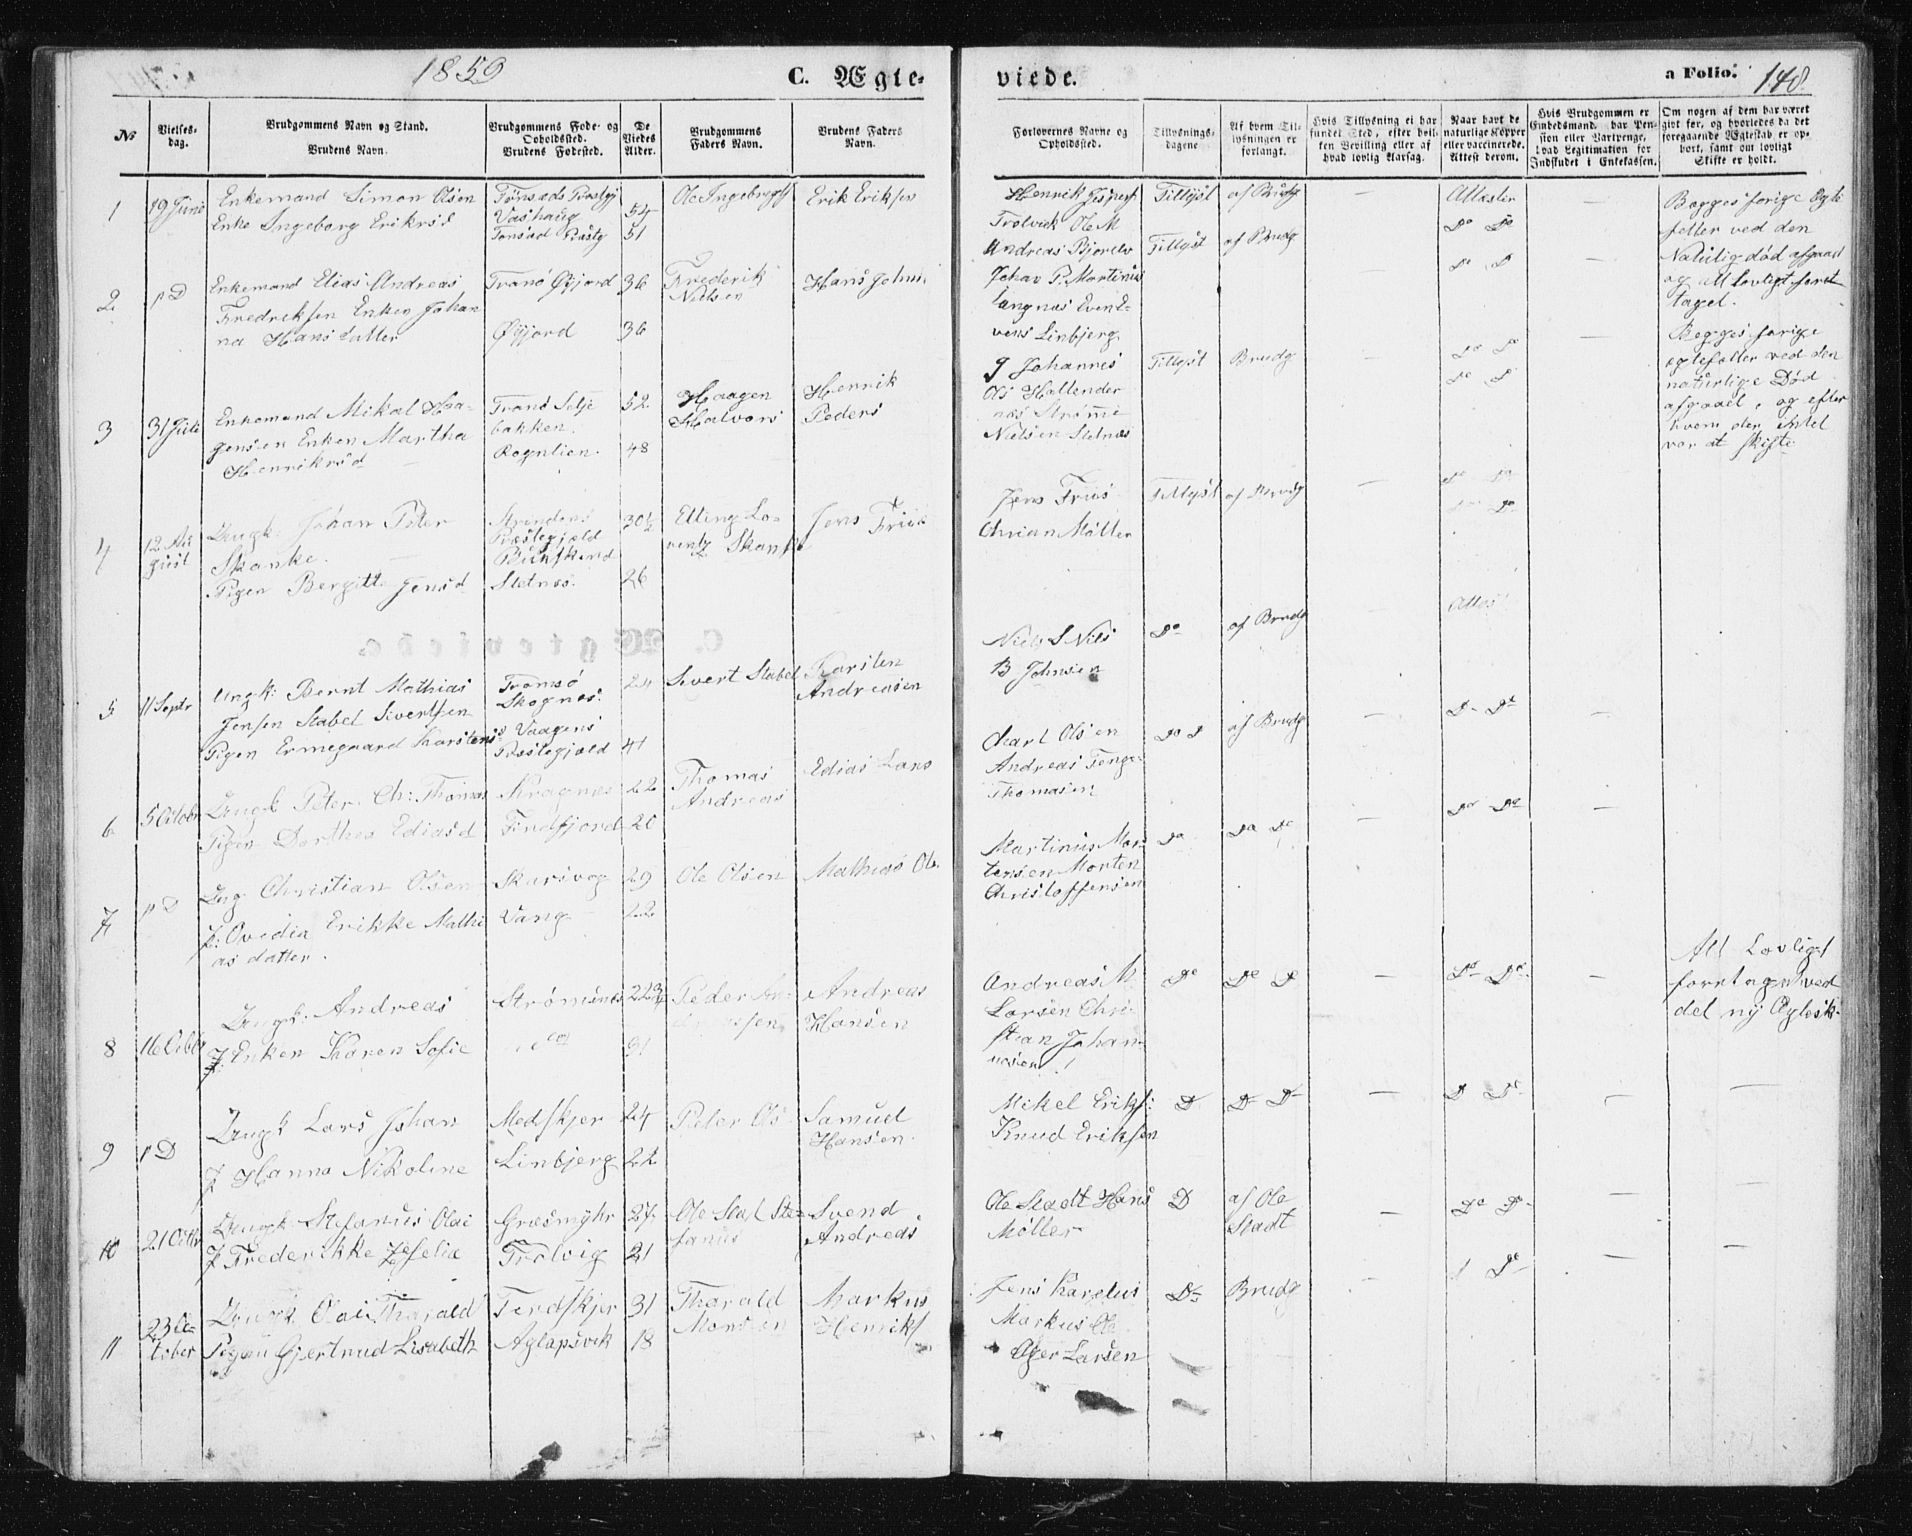 1859
C. Ægte-
viede.
a Folio: 148
No
Vielses-
dag.
Brudgommens Navn og Stand.
Brudens Navn.
Brudgommens Føde- og
Opholdssted.
Brudens Fødested.
De
Viedes
Alder.
Brudgommens
Faders Navn.
Brudens Faders
Navn.
Forlovernes Navne og
Opholdssted.
Tillysnings-
dagene
Af hvem Til-
lysningen er
forlangt.
Hvis Tillysning ei har
fundet Sted, efter hvil-
ken Bevilling eller af
hvad lovlig Aarsag.
Naar havt de
naturlige Kopper
eller vaccinerede.
Attest derom.
Hvis Brudgommen er
Embedsmand, har Pen-
sion eller Vartpenge,
hvad Legitimation for
Indskudet i Enkekassen.
Om nogen af dem har været
gift før, og hvorledes da det
foregaaende Ægteskab er op-
hørt, samt om lovligt
Skifte er holdt.
1
19 Juni
Enkemand Simon Olsen
Enke Ingeborg Eriksd
Vashaug
54
51
Ole Ingebrigt
Erik Eriksen
Henrik Jespers
Trolvik Ole M
Andreas
Tillyst
af Brudg
Attester
Do Do
Begges forige Ægte
feller ved den
Naturlig død afgaael
og alt lovligt foret
taget.
2
Enkemand Elias Andreas
Fredriksen Enken Johan
na Hansdatter
Tranö Øyjord
Øyjord
36
36
Frederik
Nielsen
Hans Johns
Johan P. Martinus
Langnes Event-
vens Linbjerg
Tillyst
af Brudg
Begges forige
egtefæller ved den
naturlige Død
afgaael, og efter
hvem der Intet
var at skifte
3
31 Juli
Enkemand Mikal Haa-
gensen Enken Martha
Henriksd
Tranö Selje
bakken.
Rognlien.
52
48
Haagen
Halvors
Henrik
Peders
Johannes
Ols Hallender
Nielsen Sletnæs
Tillyst
Brudg
4
12 Au
gust
Ungk. Johan Peter
Skanke.
Pigen Bergitte Jensd
Strindens
Præstegjæld
Sletnes.
30½
26
Elling Lo-
rentz Skanke
Jens Friis
Jens Friis
Chrian Møller
Tillyst
af Brudg
5
11 Septr
Ungk: Bernt Mathias
Jensen Stabel Sivertsen
Pigen Ermegaard Karstens
Tromsö
Skognes.
Vaagens
Præstegjeld
24
41
Sivert Stabel
Karsten
Andreasen
Niels S Nils
B Johnsen
Do
af Brudg
Attest
6
5 Octobr
Ungk Peter Ch: Thomas
Pigen Dorthea Ediasd
Kragnes
Findfjord
22
20
Thomas
Andreas
Edias Lars
Charl Olsen
Andreas Tenge-
Thomasen
af Brudg
7
Ung Christian Olsen
P: Ovedia Erikke Mathi
as datter.
Skarsvog
Vang
29
22
Ole Olsen
Mathias Ole
Martinus Mor-
tensen Morten
Christoffersen
Do
8
16 Octbr
Ungk: Andreas
P: Enken Karen Sofie
Strømsnes
31
Peder An-
dreassen
Andreas
Hansen
Andreas M
Larsen Chri-
stian Johan-
nesen
Alt Lovligt
forntagen ved
det ny Ægtesk-
9
Ungk Lars Johan
P Hanna Nikoline
Medskjer
Linbjerg
24
22
Peter Ols
Samuel
Hansen.
Mikel Eriks:
Knud Eriksen
10
21 Octbr
Ungk. Stefanus Olai
P Frederikke Zefelia
Græsmyhr
Trolvig
27
21
Ole Staf Ste-
fanus
Svend
Andreas
Ole Stadt Hans
Møller
D
af Ole
Stadt
11
23 Oc-
tober
Ungk Olai Tharald
Pigen Gjertrud Lisabeth
Ferdskjer
Aglapsvik
31
18
Tharald
Monsen
Markus
Henriks
Jens Karelius
Markus Ole
Oger Larsen
Brudg